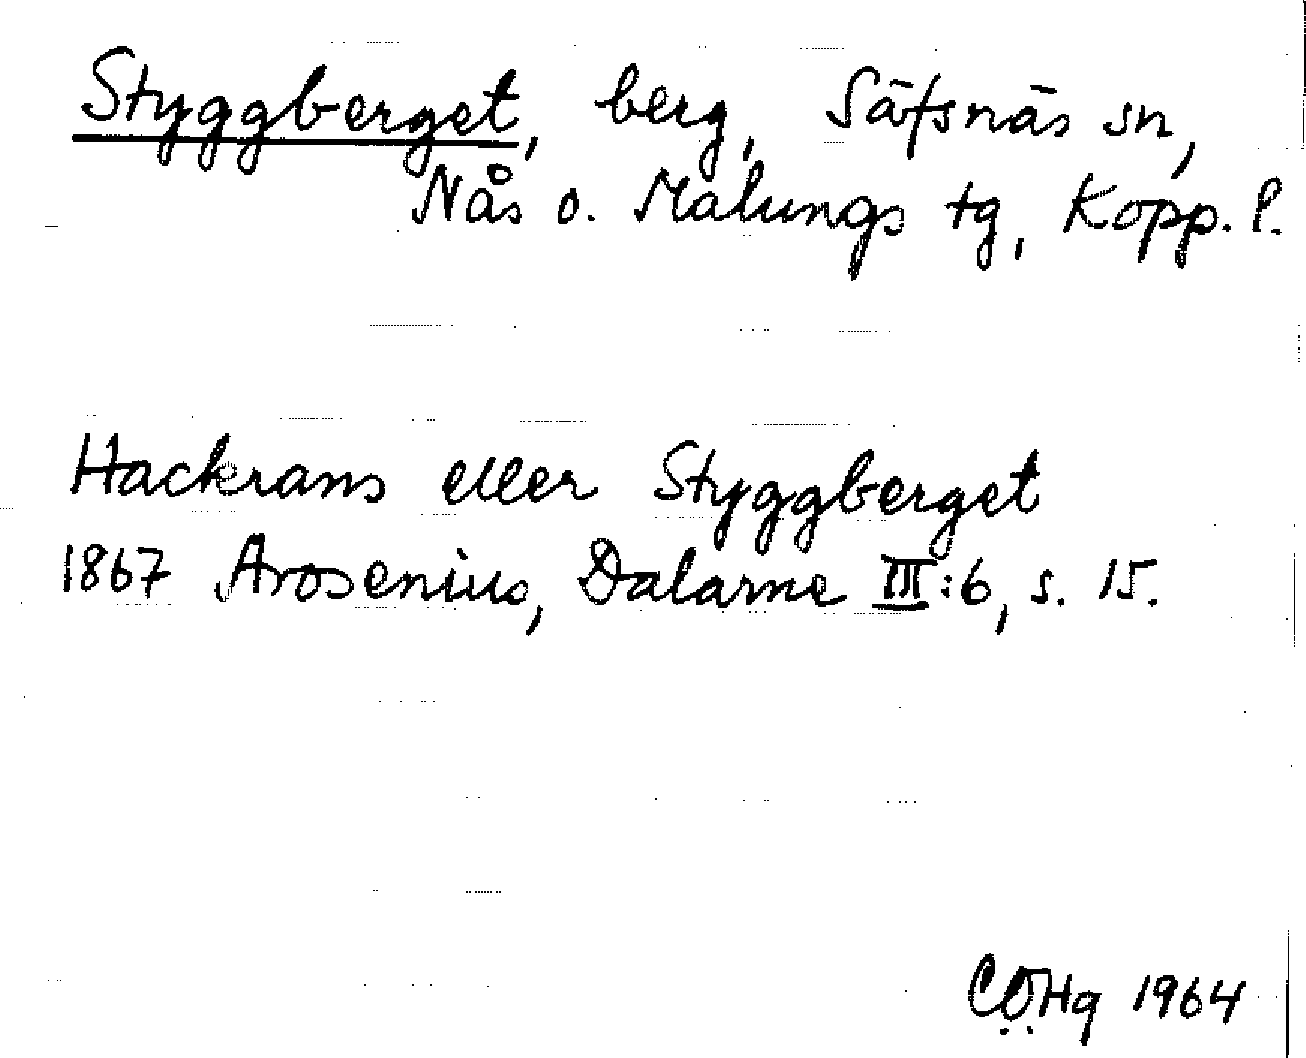 Styggberget, berg, Säfsnäs sn,
Nås o. Malungs tg, Kopp. l.
Hackrans eller Styggberget
1867 Arosenius, Dalarne III:6, s. 15.
CÖHg 1964